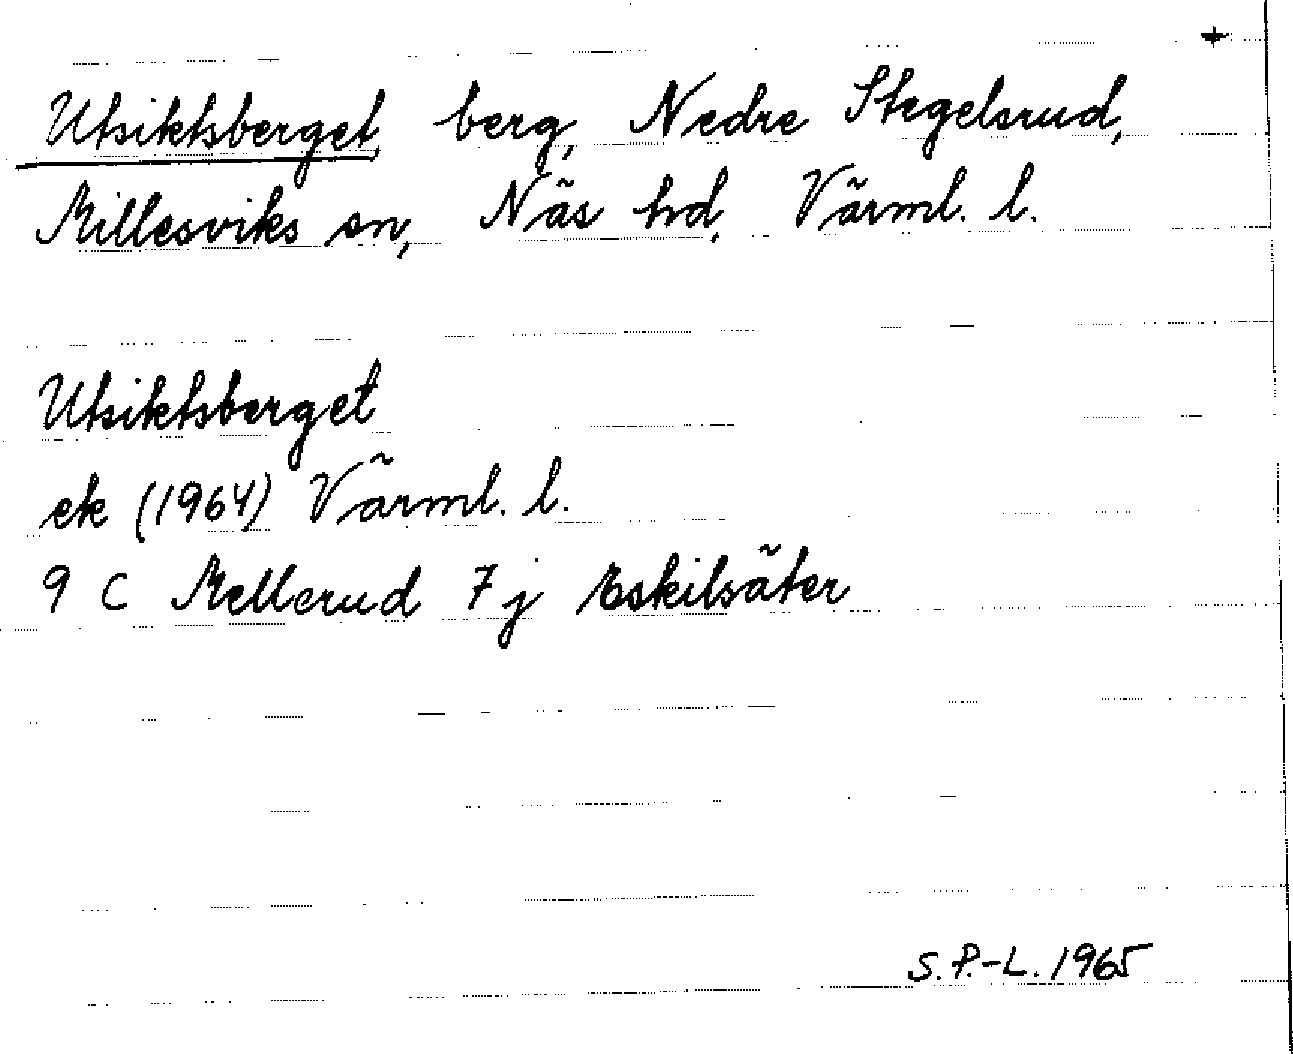 Utsiktsberget, berg, Nedre Stegelsrud,
Millesviks sn, Näs hd, Värml. l.
Utsiktsberget
ek (1964) Värml. l.
9 C Mellerud 7 j Eskilsäter
S. P.-L. 1965